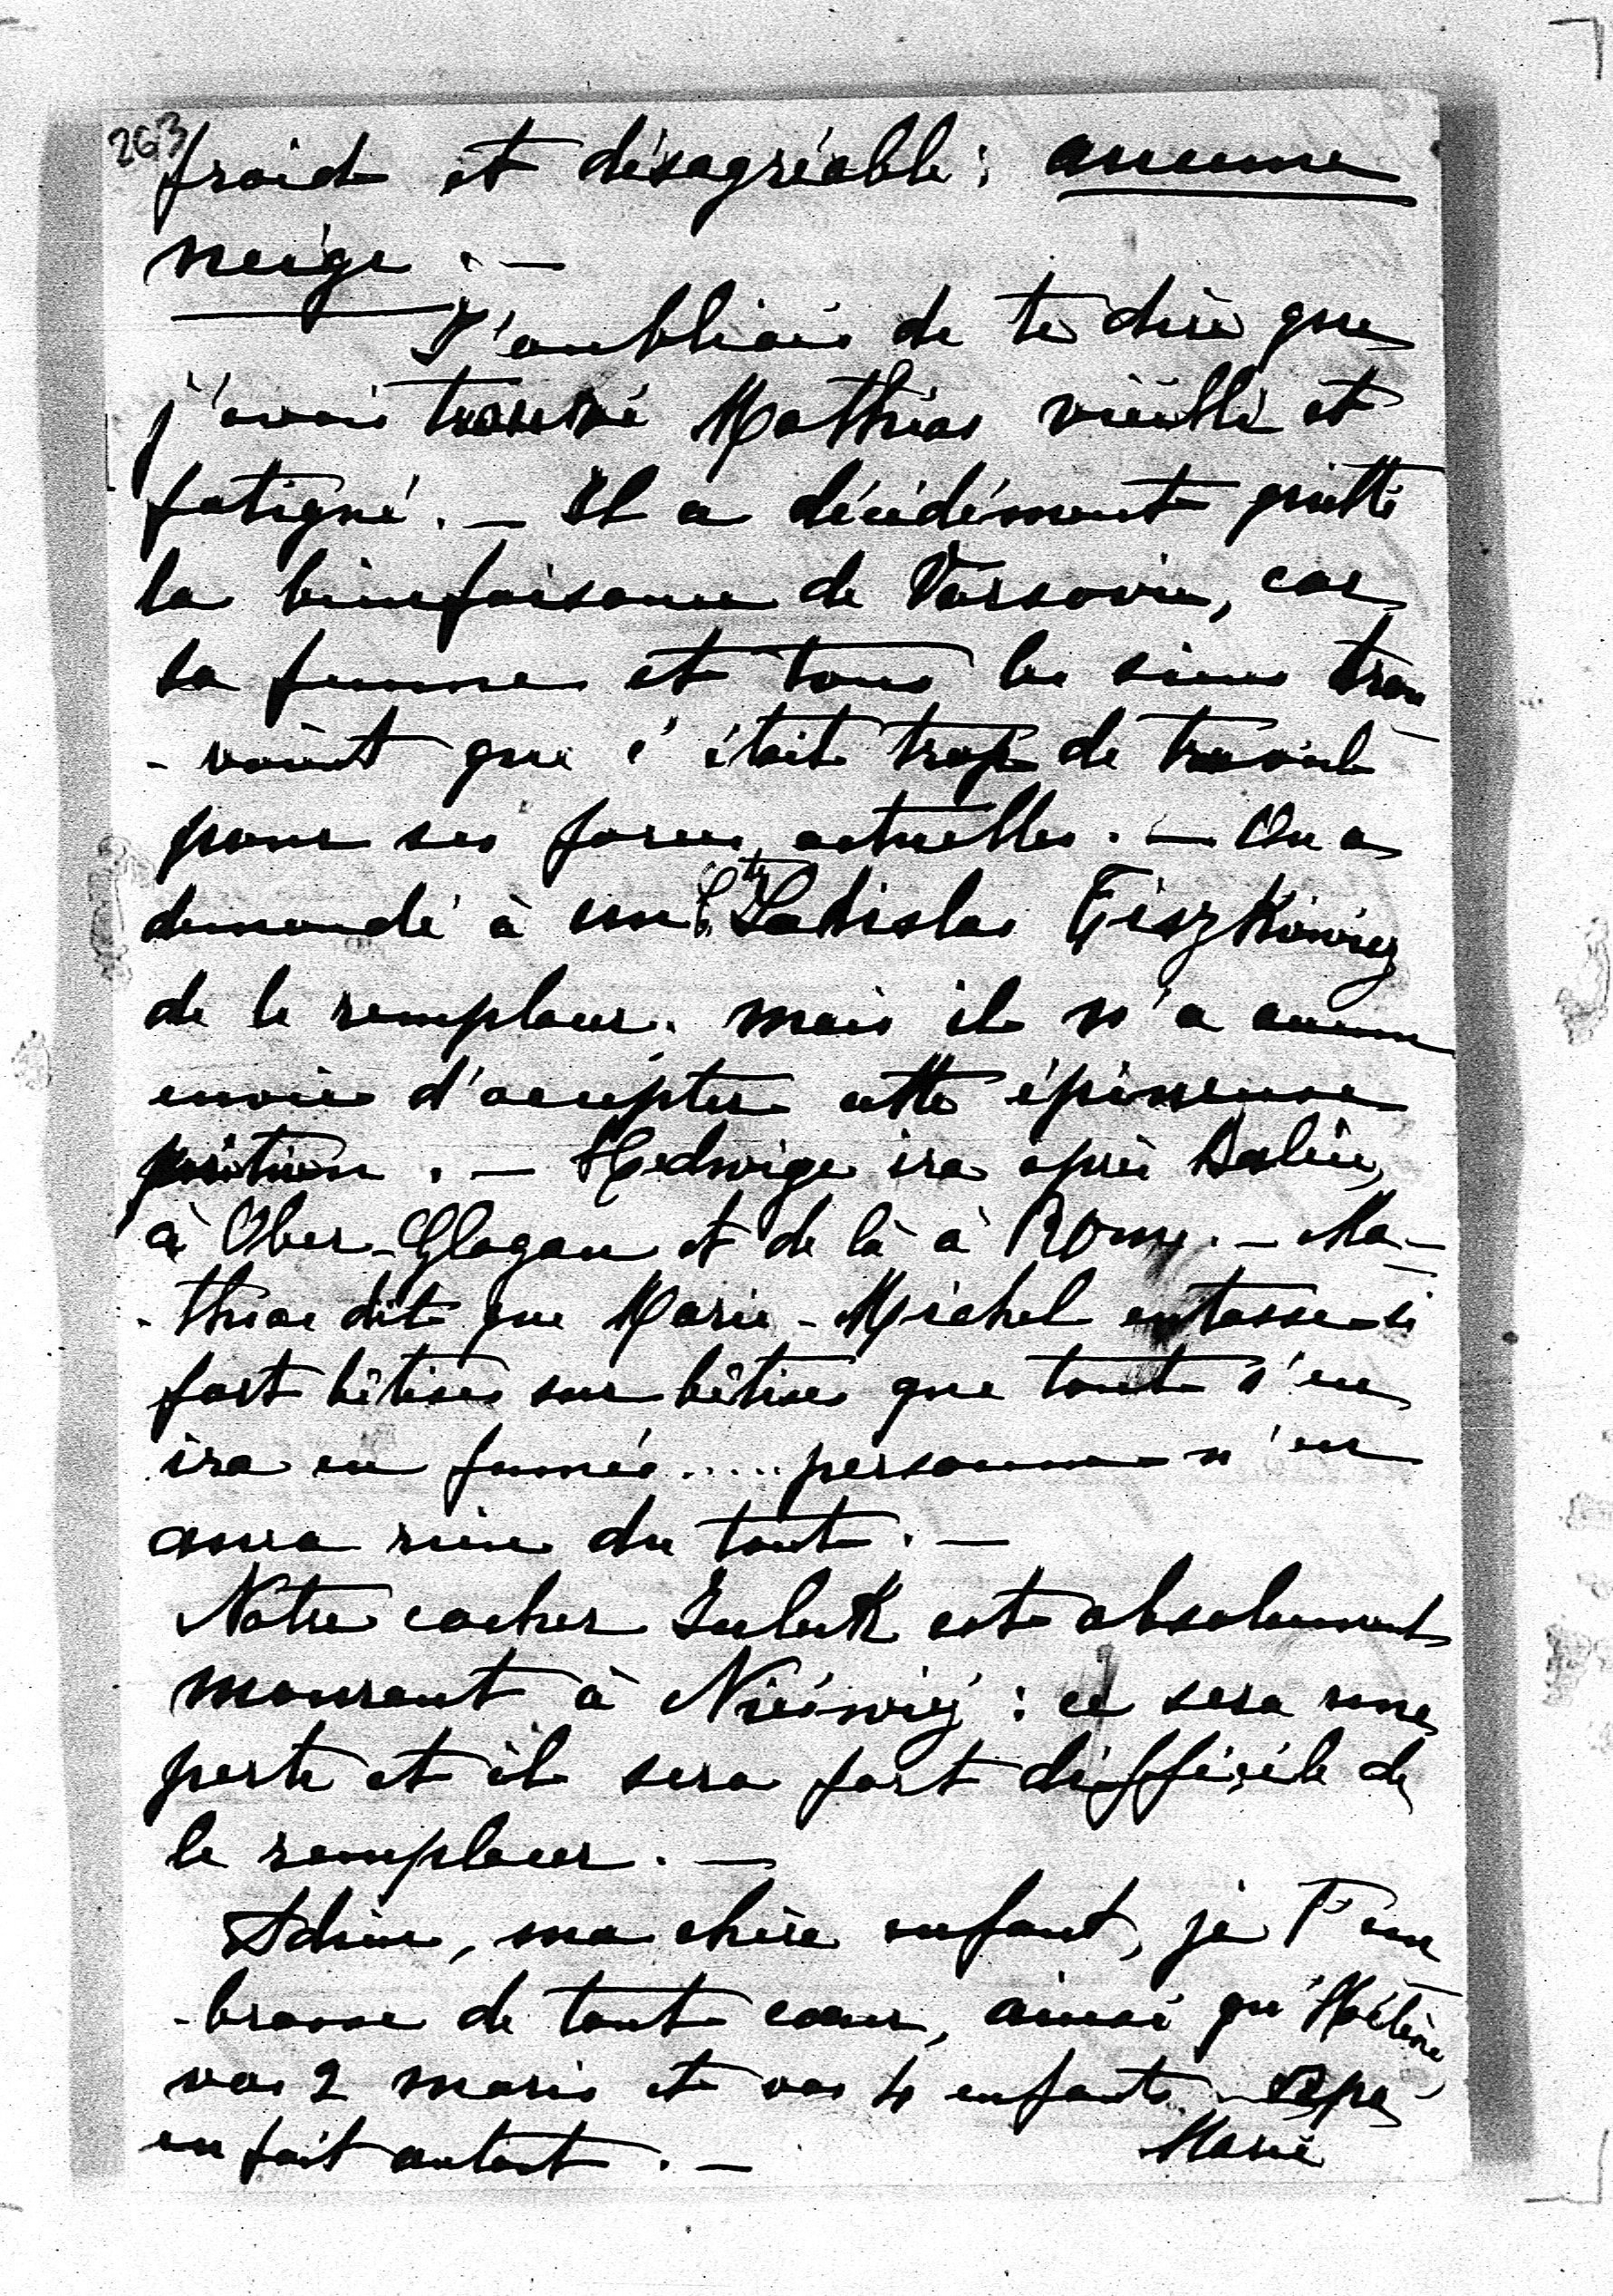 263
froid et désagréable; aucune
neige. —
J'oubliais de te dire que
j'avais trouvé Mathias vieilli et
fatigué. — Il a décidément quitté
la bienfaisance de Varsovie, car
sa femme et tous les siens trou
-vaient que c'était trop de travail
pour ses forces actuelles. — On a
demandé à un Cte Ladislas Tiszkiewicz
de le remplacer. mais il n'a aucune
envie d'accepter cette épineuse
position. — Hedwige ira après Berlin,
à Ober-Glogau et de là à Rome. — Ma-
-thias dit que Marie-Michel entasse si
fort bêtises sur bêtises que tout s'en
ira en fumée..... personne n'en
aura rien du tout. —
Notre cocher est absolument
mourant à Nieśwież : ce sera une
perte et il sera fort difficile de
le remplacer. —
Adieu, ma chère enfant, je T'em
-brasse de tout cœur, ainsi qu'Hélène
vos 2 maris et vos 4 enfants. — Papa
en fait autant. — Marie